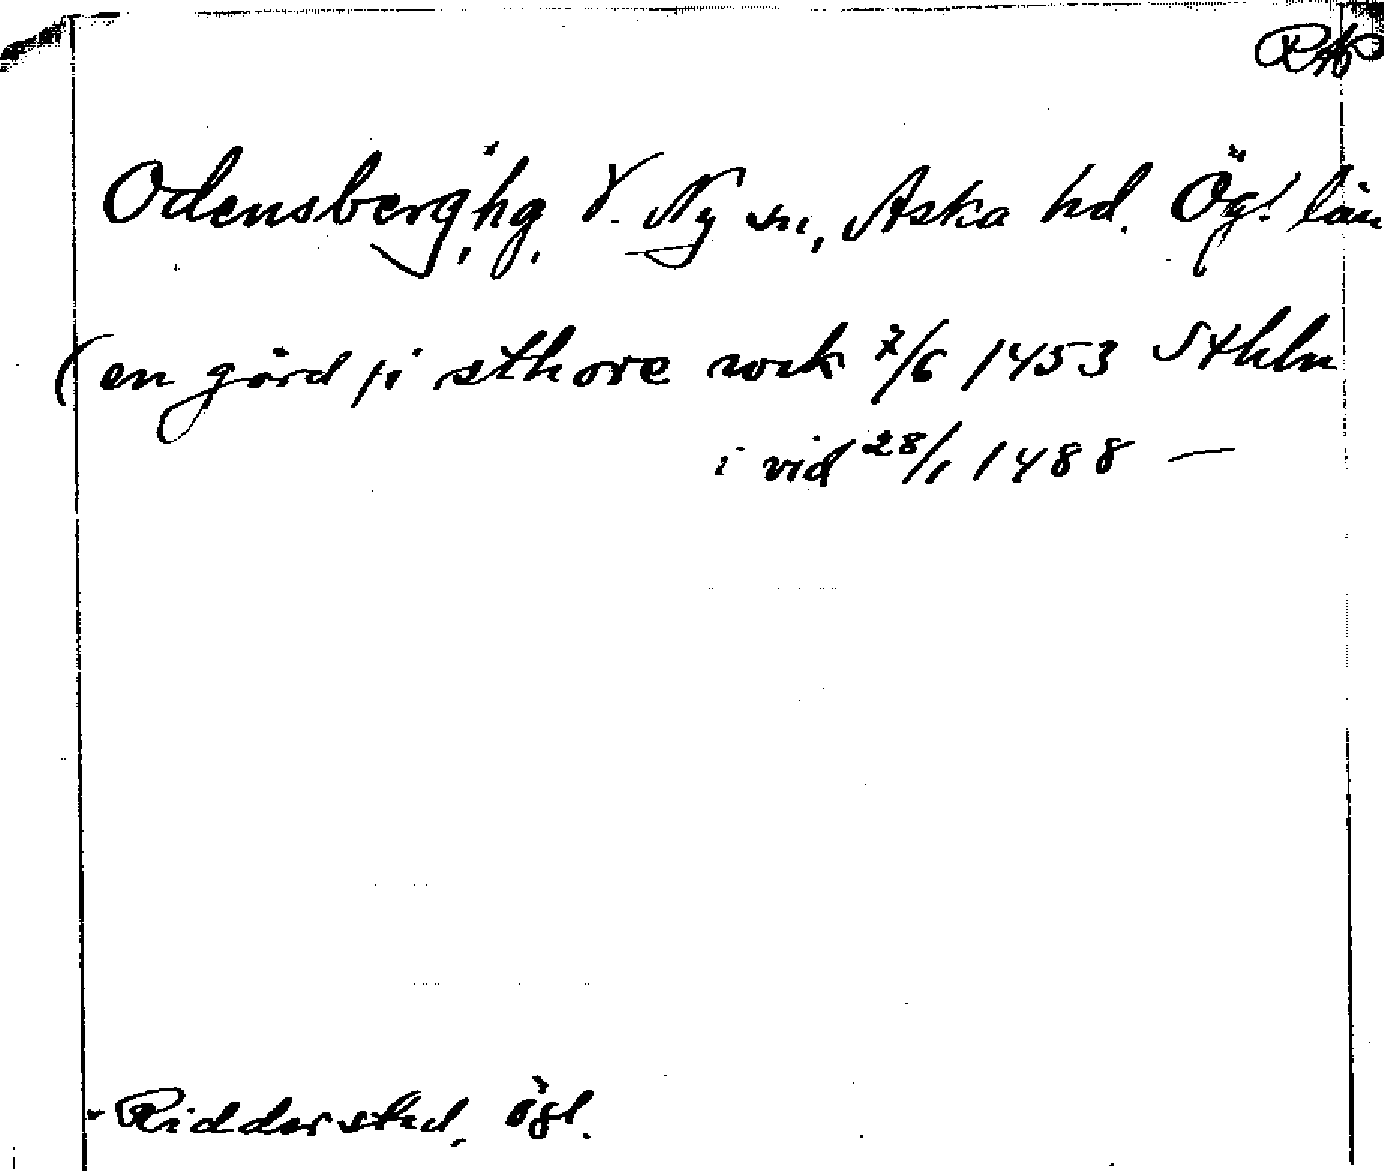 RAP
Odensberg, hg, V. Ny sn, Aska hd. Ögl län
(en gård j i sthore rock 7/6 1453 Sthlm
i vid 28/1 1488 —
Ridderstad, Ögl.